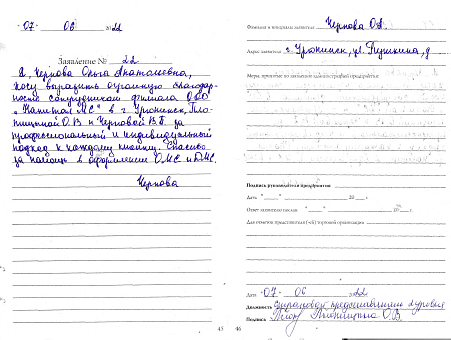 "07" 06 2022
Заявление № 22
Я, Чернова Ольга Анатольевна,
хочу выразить огромную благодар-
ность сотрудникам филиала ООО
"Капитал МС" в г. Урюпинск, Пло-
тницкой О.В и Черновой В.Г. за
профессиональный и индивидуальный
подход к каждому клиенту. Спасибо
за помощь в оформлении ОМС и ДМС.
Чернова
45
Фамилия и инициалы заявителя Чернова О.А.
Адрес заявителя г. Урюпинск, ул. Пушкина, д
Меры, принятые по заявлению администрацией предприятия
Подпись руководителя предприятия
Дата " " 20 г.
Ответ заявителю послан " " 20 г.
Для отметок представителя (ей) торговой организации
Дата "07" 06 2022
Должность страховой представитель 2 уровня
Подпись О.В.
46